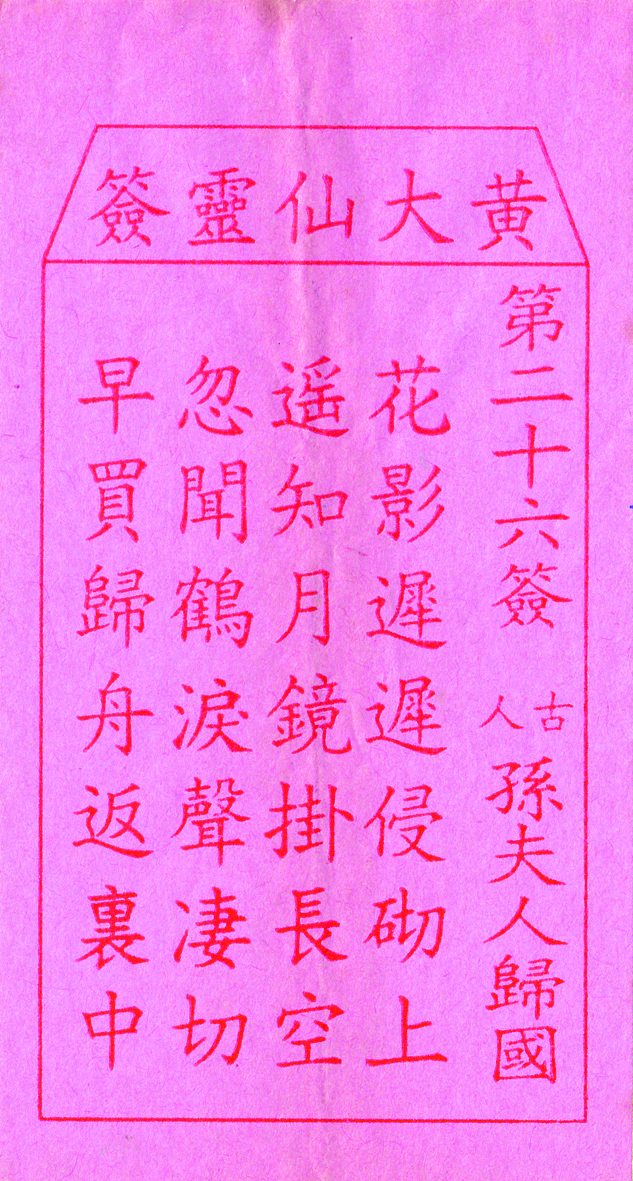 黄大仙靈簽
第二十六簽 古人 孫夫人歸國
花影遲遲侵砌上
遥知月鏡掛長空
忽聞鶴淚聲凄切
早買歸舟返裏中